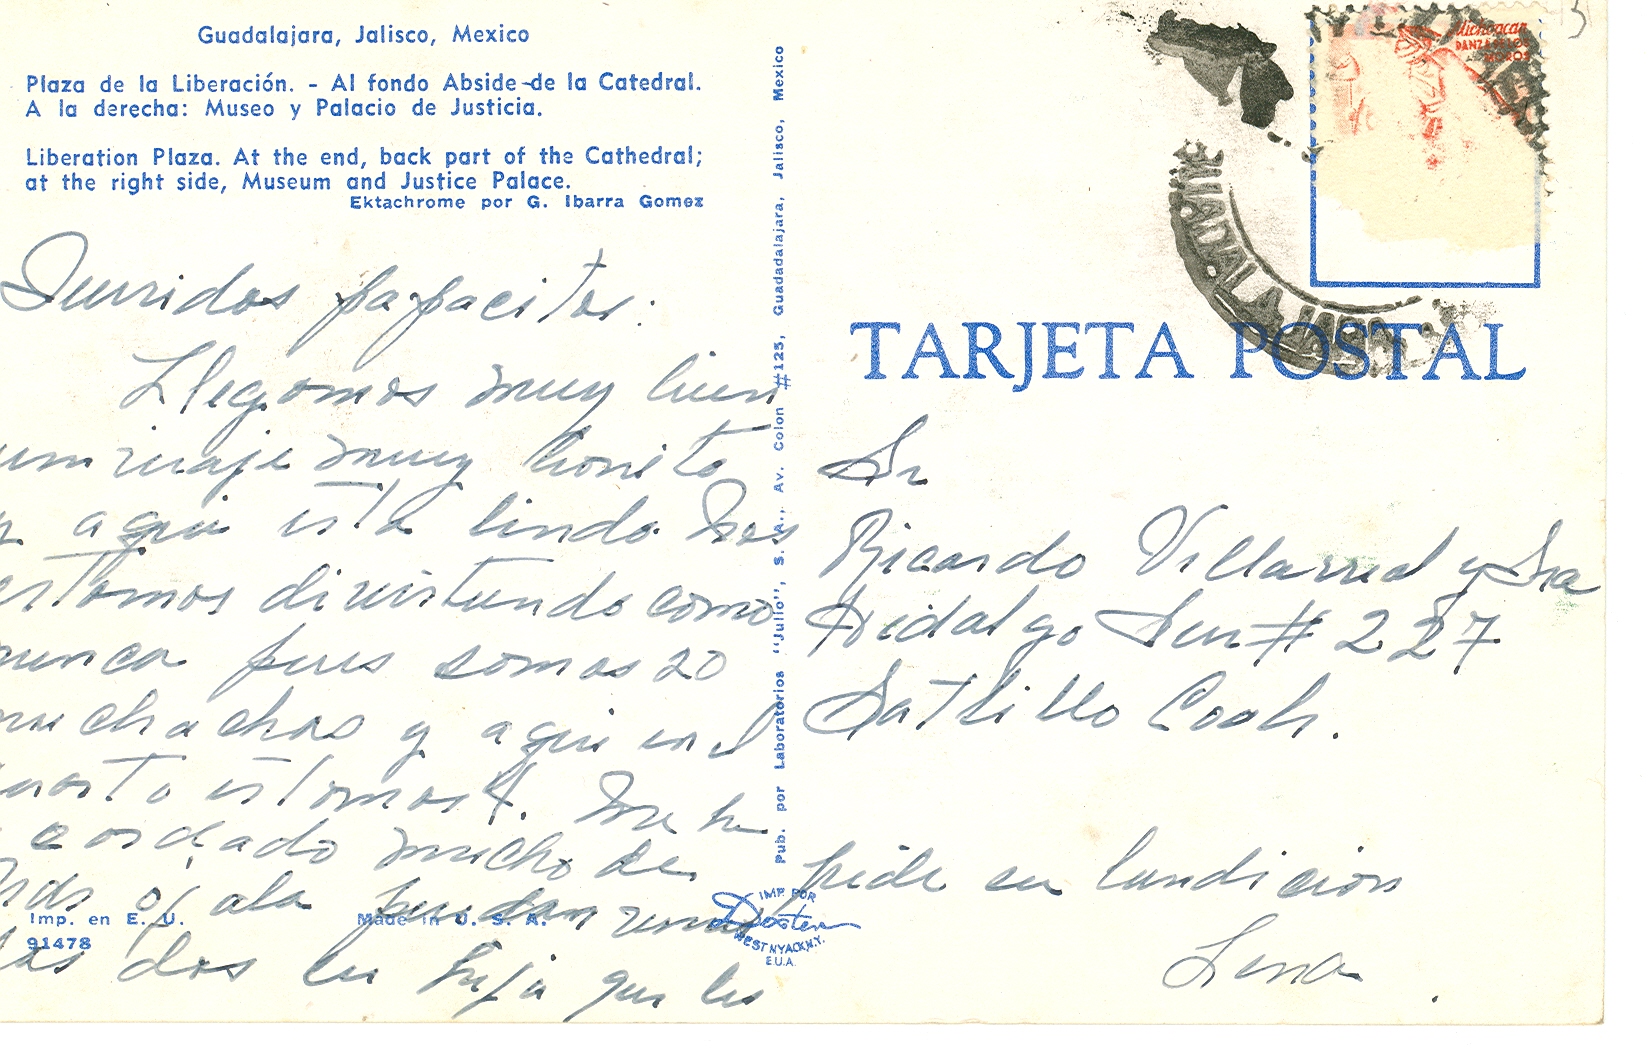 Guadalajara, Jalisco, Mexico
Plaza de la Liberación. - Al fondo Abside de la Catedral.
A la derecha: Museo y Palacio de Justicia.
Liberation Plaza. At the end, back part of the Cathedral;
at the right side, Museum and Justice Palace.
Ektachrome por G. Ibarra Gomez
Qurridos papacitos:
Llegamos muy bien
un viaje muy bonito
y aqui esta lindo Nos
estamos divirtiendo como
nunca pues somos 20
muchachas y aqui en el
cuarto estamos 4. Me he
acordado mucho de
Uds ojala puedan venir
los dos su hija que les
pide su bendicion
Lena.
Imp. en E. U.
91478
Made in U. S. A.
IMP. POR
Dexter
WEST NYACK N.Y.
E.U.A.
Pub. por Laboratorios "Julio", S. A., Av. Colon #125, Guadalajara, Jalisco, Mexico
Michoacan
DANZA DE LOS
MOROS
GUADALAJARA
3
TARJETA POSTAL
Sr
Ricardo Villarreal y Sra
Hidalgo Sur # 227
Saltillo Coah.